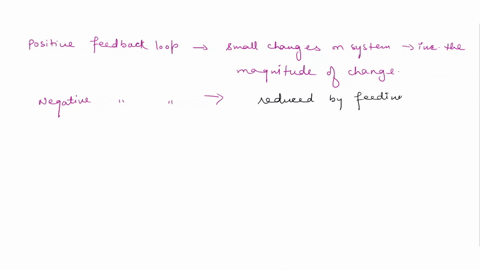 Positive feedback loop → small changes on system → inc. the
magnitude of change.
Negative " " → reduced by feedine